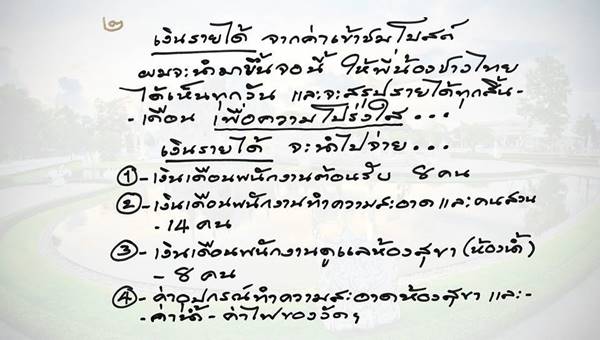 ๒
เงินรายได้ จากค่าเข้าชมโบสถ์
ผมจะนำมาขึ้นจอนี้ ให้พี่น้องชาวไทย
ได้เห็นทุกวัน และจะสรุปรายได้ทุกสิ้น-
-เดือน เพื่อความโปร่งใส...
เงินรายได้ จะนำไปจ่าย...
① - เงินเดือนพนักงานต้อนรับ 8 คน
② - เงินเดือนพนักงานทำความสะอาด และคนสวน
- 14 คน
③ - เงินเดือนพนักงานดูแลห้องสุขา (ห้องน้ำ)
- 8 คน
④ - ค่าอุปกรณ์ทำความสะอาดห้องสุขา และ-
- ค่าน้ำ - ค่าไฟของวัดฯ